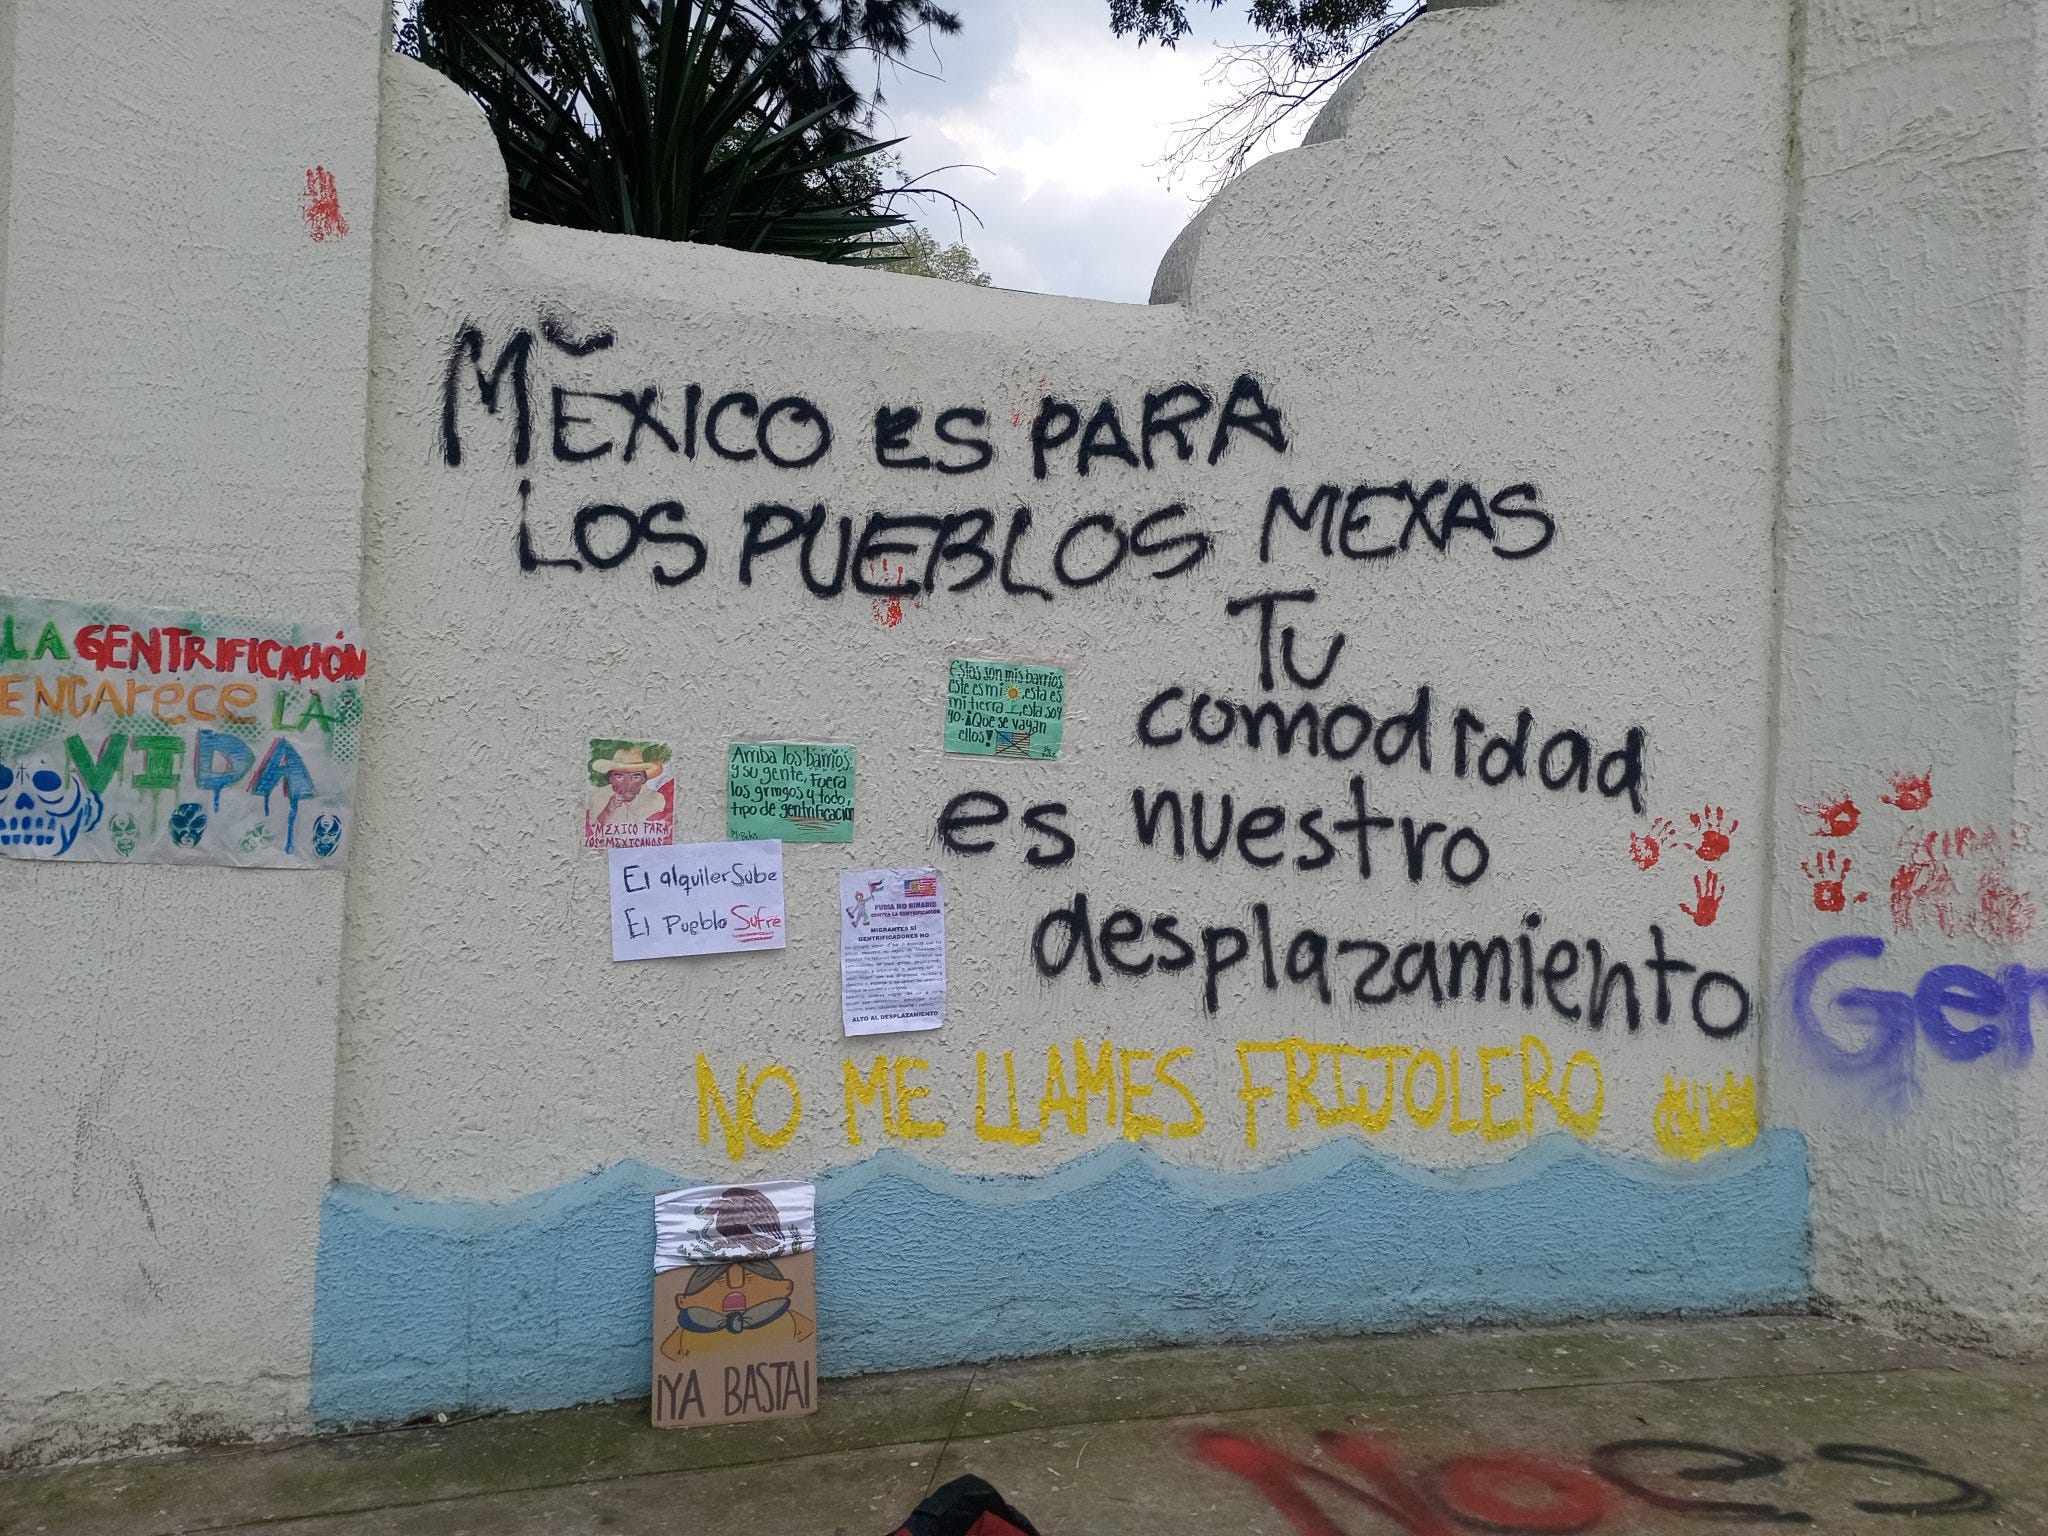 MĔXICO es PARA
LOS PUEBLOS MEXAS
TU
comodidad
es nuestro
desplazamiento
NO ME LLAMES FRIJOLERO
LA GENTRIFICACIÓN
ENCArece LA
VIDA
Estos son mis barrios,
este es mi ,esta es
mi tierra , esta soy
yo. ¡Que se vayan
ellos!
Arriba los barrios
y su gente, Fuera
los gringos y todo
tipo de gentrificación
MÉXICO PARA
LOS MEXICANOS
El alquiler Sube
El Pueblo Sufre
FURIA NO BINARIE
CONTRA LA GENTRIFICACIÓN
MIGRANTES SÍ
GENTRIFICADORES NO
ALTO AL DESPLAZAMIENTO
Gen
¡YA BASTA!
No es